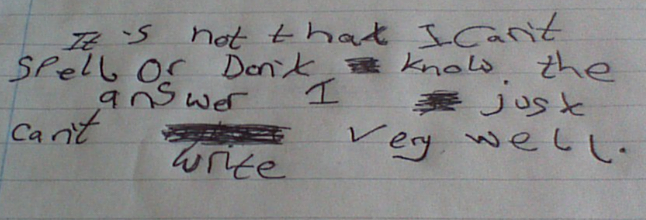 It's not that I can't
spell or Don't know the
answer I just
can't write very well.